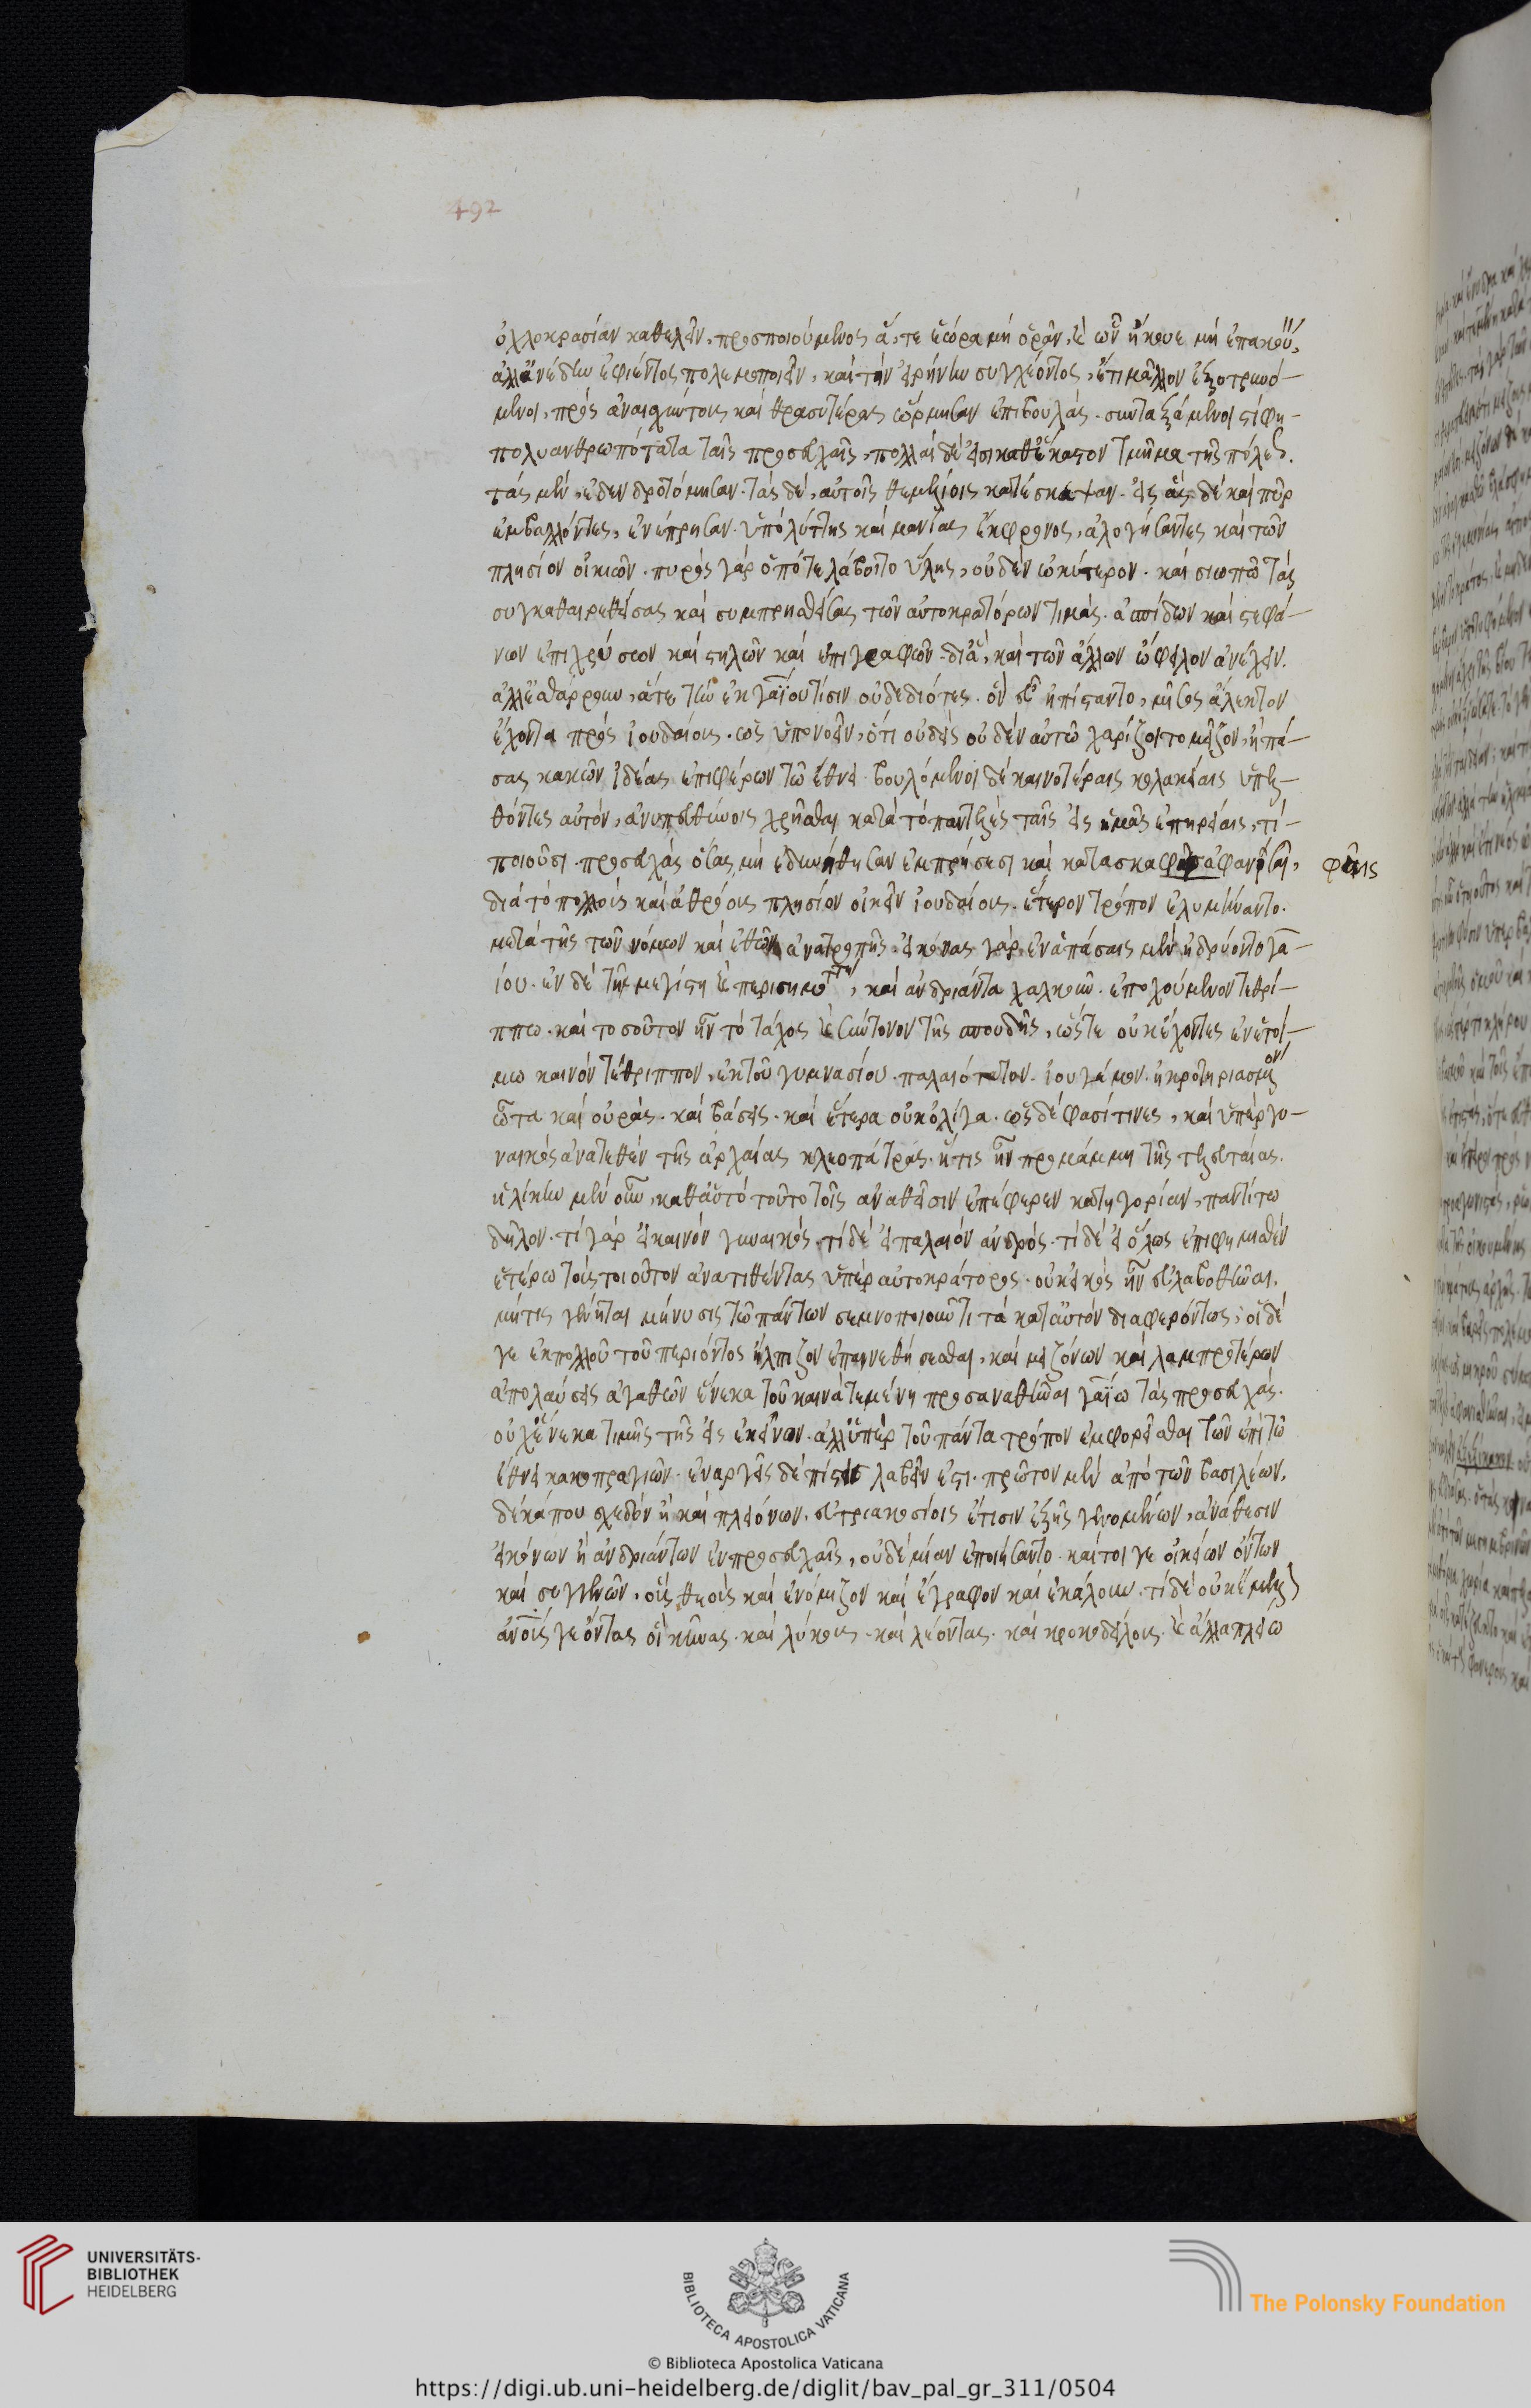 492
ὀχλοκρασίαν καθελεῖν, προσποιούμενος ἅ,τε ἑώρα μὴ ὁρᾶν, καὶ ὧν ἤκουε μὴ ἐπακού,
ἀλλ' ἀνέδην ἐφιέντος πολεμοποιεῖν, καὶ τὴν εἰρήνην συγχέοντος, ἔτι μᾶλλον ἐξοτρυνό-
μενοι, πρὸς ἀναισχύντους καὶ θρασυτέρας ὥρμησαν ἐπιβουλάς. συνταξάμενοι στίφη-
πολυανθρωπότατα ταῖς προσευχαῖς, πολλαὶ δέ εἰσι καθ' ἕκαστον τμῆμα τῆς πόλεως.
τὰς μὲν, ἐδενδροτόμησαν. τὰς δὲ, αὐτοῖς θεμελίοις κατέσκαψαν. εἰς ἃς δὲ καὶ πῦρ
ἐμβαλλόντες, ἐνέπρησαν. ὑπὸ λύττης καὶ μανίας ἔκφρονος, ἀλογήσαντες καὶ τῶν
πλησίον οἰκιῶν. πυρὸς γὰρ ὁπότε λάβοιτο ὕλης, οὐδὲν ὠκύτερον. καὶ σιωπῶ τὰς
συγκαθαιρεθείσας καὶ συμπρησθείσας τῶν αὐτοκρατόρων τιμάς. ἀσπίδων καὶ στεφά-
νων ἐπιχρύσεον καὶ στηλῶν καὶ ἐπιγραφῶν. δι' ἃ, καὶ τῶν ἄλλων ὤφειλον ἀνέχειν.
ἀλλ' ἐθάρρουν, ἅτε τὴν ἐκ γαΐου τίσιν οὐ δεδιότες. ὃν εὖ ἠπίσταντο, μῖσος ἄλεκτον
ἔχοντα πρὸς ἰουδαίους. ὡς ὑπονοεῖν, ὅτι οὐδεὶς οὐδὲν αὐτῷ χαρίζοιτο μεῖζον, ἢ πά-
σας κακῶν ἰδέας ἐπιφέρων τῷ ἔθνει. βουλόμενοι δὲ καινοτέραις κολακείαις ὑπελ-
θόντες αὐτὸν, ἀνυπευθύνοις χρῆσθαι κατὰ τὸ παντελὲς ταῖς εἰς ἡμᾶς ἐπηρείαις, τί-
ποιοῦσι. προσευχὰς ὅσας μὴ ἐδυνήθησαν ἐμπρήσεσι καὶ κατασκαφαῖς ἀφανίσαι, φαῖς
διὰ τὸ πολλοὺς καὶ ἀθρόους πλησίον οἰκεῖν ἰουδαίους. ἕτερον τρόπον ἐλυμήναντο.
μετὰ τῆς τῶν νόμων καὶ ἐθῶν ἀνατροπῆς. εἰκόνας γὰρ ἐν ἁπάσαις μὲν ἱδρύοντο γα-
ίου. ἐν δὲ τῇ μεγίστῃ καὶ περισημοτάτῃ, καὶ ἀνδριάντα χαλκοῦν. ἐποχούμενον τεθρί-
ππω. καὶ τοσοῦτον ἦν τὸ τάχος καὶ σύντονον τῆς σπουδῆς, ὥστε οὐκ ἔχοντες ἐν ἑτοί-
μω καινὸν τέθριππον, ἐκ τοῦ γυμνασίου. παλαιότατον. ἰουγέμον. ἠκρωτηριασμένον
ὦτα καὶ οὐράς. καὶ βάσεις. καὶ ἕτερα οὐκ ὀλίγα. ὡς δέ φασί τινες, καὶ ὑπὲρ γυ-
ναικὸς ἀνατεθὲν τῆς ἀρχαίας κλεοπάτρας. ἥτις ἦν προμάμμη τῆς τελευταίας.
ἡλίκην μὲν οὖν, καθ' αὑτὸ τοῦτο τοῖς ἀναθεῖσιν ἐπέφερεν κατηγορίαν, παντί τω
δῆλον. τί γὰρ εἰ καινὸν γυναικός. τί δὲ εἰ παλαιὸν ἀνδρός. τί δὲ εἰ ὅλως ἐπιφημισθὲν
ἑτέρω τοὺς τοιοῦτον ἀνατιθέντας ὑπὲρ αὐτοκράτορος. οὐκ εἰκὸς ἦν εὐλαβηθῆναι,
μή τις γένηται μήνυσις τῷ πάντων σεμνοποιοῦντι τὰ κατ' αὐτὸν διαφερόντως; οἱ δέ
γε ἐκ πολλοῦ τοῦ περιόντος ἤλπιζον ἐπαινεθήσεσθαι, καὶ μειζόνων καὶ λαμπροτέρων
ἀπολαύσεις ἀγαθῶν ἕνεκα τοῦ καινὰ τεμένη προσαναθεῖναι γαΐω τὰς προσευχάς.
οὐχ ἕνεκα τιμῆς τῆς εἰς ἐκεῖνον. ἀλλ' ὑπὲρ τοῦ πάντα τρόπον ἐμφορεῖσθαι τῶν ἐπὶ τῷ
ἔθνει κακοπραγιῶν. ἐναργεῖς δὲ πίστεις λαβεῖν ἔστι. πρῶτον μὲν ἀπὸ τῶν βασιλέων.
δέκα που σχεδὸν ἢ καὶ πλειόνων, ἐν τριακοσίοις ἔτεσιν ἑξῆς γενομένων, ἀνάθεσιν
εἰκόνων ἢ ἀνδριάντων ἐν προσευχαῖς, οὐδεμίαν ἐποιήσαντο. καίτοι γε οἰκείων ὄντων
καὶ συγγενῶν, οὓς θεοὺς καὶ ἐνόμιζον καὶ ἔγραφον καὶ ἐκάλουν. τί δὲ οὐκ ἔμελλον
ἀνους γε ὄντας οἱ κύνας. καὶ λύκους. καὶ λέοντας. καὶ κροκοδείλους. καὶ ἄλλα πλείω
UNIVERSITÄTS-
BIBLIOTHEK
HEIDELBERG
BIBLIOTECA APOSTOLICA VATICANA
The Polonsky Foundation
© Biblioteca Apostolica Vaticana
https://digi.ub.uni-heidelberg.de/diglit/bav_pal_gr_311/0504